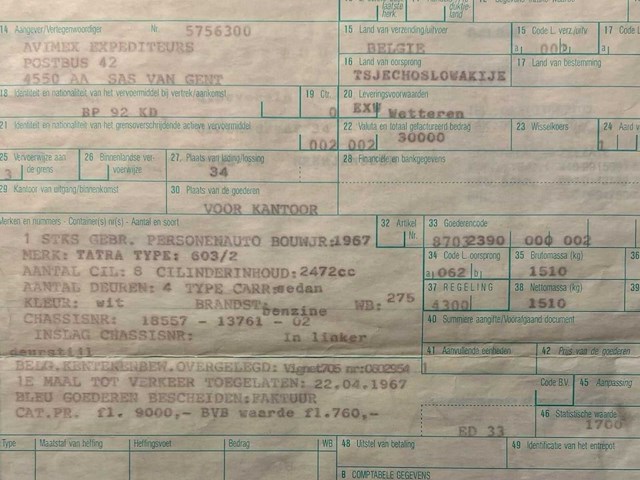 14 Aangever/Vertegenwoordiger Nr. 5756300
AVIMEX EXPEDITEURS
POSTBUS 42
4550 AA SAS VAN GENT
15 Land van verzending/uitvoer
BELGIE
15 Code L. verz./uitv
a 002 b
17 Code L
a
16 Land van oorsprong
TSJECHOSLOWAKIJE
17 Land van bestemming
18 Identiteit en nationaliteit van het vervoermiddel bij vertrek/aankomst
BP 92 KD
19 Ctr.
0
20 Leveringsvoorwaarden
EXW Wetteren
21 Identiteit en nationaliteit van het grensoverschrijdende actieve vervoermiddel
002
22 Valuta en totaal gefactureerd bedrag
002 30000
23 Wisselkoers
24 Aard v
1
25 Vervoerwijze aan de grens
3
26 Binnenlandse vervoerwijze
27. Plaats van lading/lossing
34
28 Financiële en bankgegevens
29 Kantoor van uitgang/binnenkomst
30 Plaats van de goederen
VOOR KANTOOR
Merken en nummers - Container(s) nr(s) - Aantal en soort
32 Artikel Nr.
33 Goederencode
87032390 000 002
1 STKS GEBR. PERSONENAUTO BOUWJR:1967
MERK: TATRA TYPE: 603/2
AANTAL CIL: 8 CILINDERINHOUD:2472cc
AANTAL DEUREN: 4 TYPE CARR:sedan
KLEUR: wit BRANDST: benzine WB: 275
CHASSISNR: 18557 - 13761 - 02
INSLAG CHASSISNR: In linker
deurstijl
34 Code L.oorsprong
a 062 b
35 Brutomassa (kg)
1510
36
37 REGELING
4300
38 Nettomassa (kg)
1510
39
40 Summiere aangifte/Voorafgaand document
41 Aanvullende eenheden
42 Prijs van de goederen
BELG.KENTEKENBEW.OVERGELEGD: Vignet705 nr:0802954
1E MAAL TOT VERKEER TOEGELATEN: 22.04.1967
BLEU GOEDEREN BESCHEIDEN:FAKTUUR
CAT.PR. fl. 9000,- BVB waarde fl.760,-
Code B.V.
45 Aanpassing
46 Statistische waarde
1700
ED 33
Type Maatstaf van heffing Heffingsvoet Bedrag WB
48 Uitstel van betaling
49 Identificatie van het entrepot
B COMPTABELE GEGEVENS